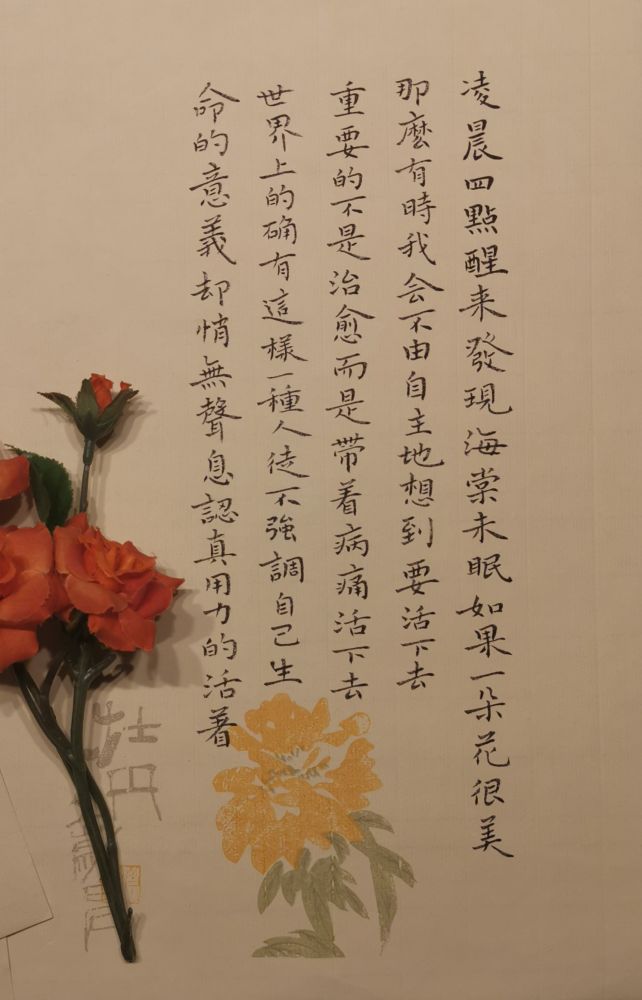 凌晨四點醒来發現海棠未眠如果一朵花很美
那麼有時我会不由自主地想到要活下去
重要的不是治愈而是带着病痛活下去
世界上的确有這樣一種人徒不強調自己生
命的意義却悄無聲息認真用力的活着
牡丹